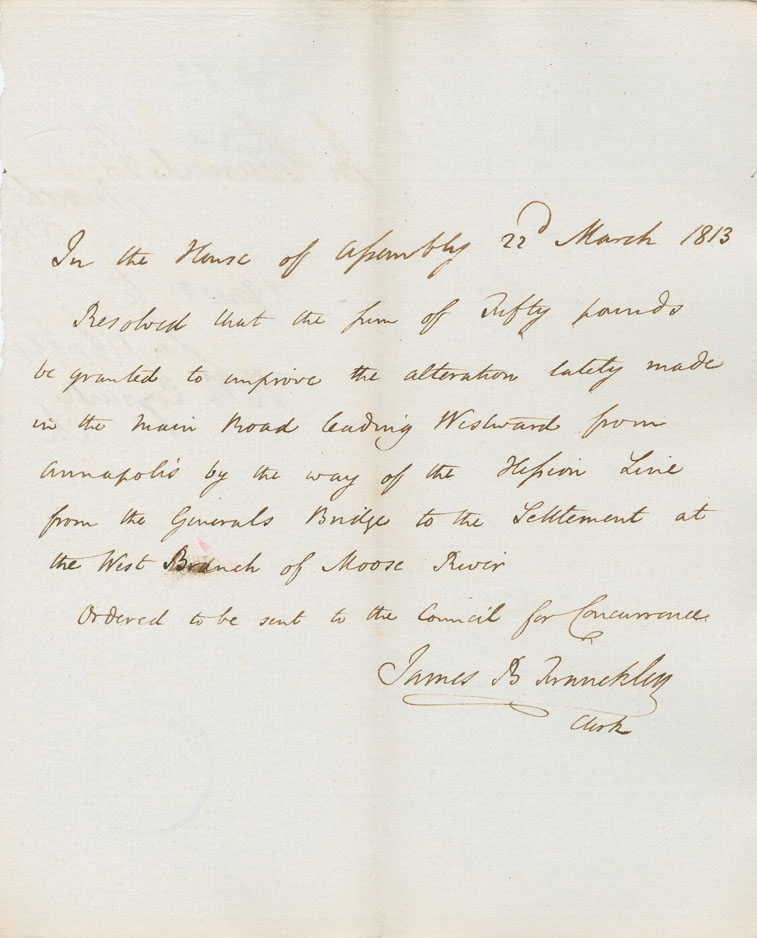 In the House of Assembly 22d March 1813
Resolved that the sum of Fifty pounds
be granted to improve the alteration lately made
in the Main Road leading Westward from
Annapolis by the way of the Hession Line
from the Generals Bridge to the Settlement at
the West Branch of Moose River
Ordered to be sent to the Council for Concurrence.
James B Franckley
Clerk